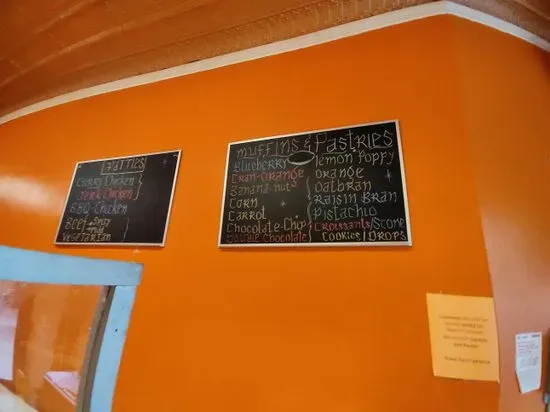 PATTIES
Curry Chicken
Jerk Chicken
BBQ-Chicken
Beef Spicy
Mild
Vegetarian
Muffins & Pastries
Blueberry
Cran-Orange
Banana-nuts
Corn
Carrol
Chocolate-Chip
Double Chocolate
lemon Poppy
orange
Oatbran
Raisin Bran
Pistachio
Croissants/Scone
Cookies/Drops